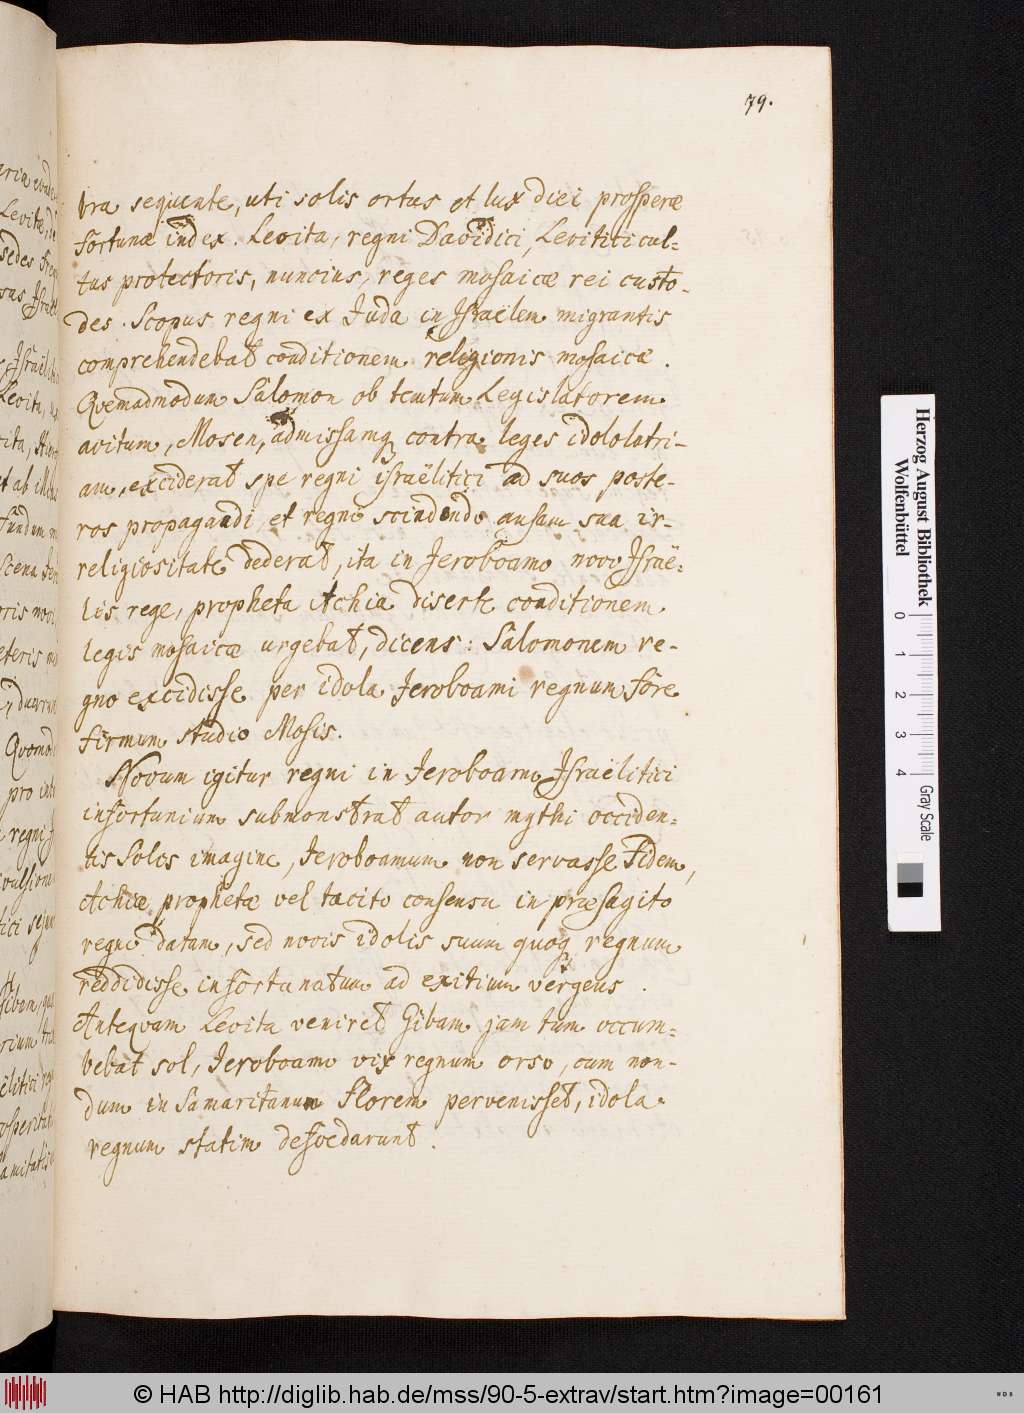 79.
bra sequente, uti solis ortus et lux diei prosperæ
fortunæ index. Levita, regni Davidici, Levitici cul-
tus protectoris, nuncius, reges mosaicæ rei custo-
des. Scopus regni ex Juda in Israëlem migrantis
comprehendebat conditionem religionis mosaicæ.
Qvemadmodum Salomon ob temtum Legislatorem
avitum, Mosen, admissamq contra leges idololatri-
am, exciderat spe regni israëlitici ad suos poste-
ros propagandi, et regni scindendo ansam sua ir-
religiositate dederat, ita in Jeroboamo novo Israë-
lis rege, propheta Achia diserte conditionem
legis mosaicæ urgebat, dicens: Salomonem re-
gno excidisse per idola Jeroboami regnum fore
firmum studio Mosis.
Novum igitur regni in Jeroboamo Israëlitici
infortunium submonstrat autor mythi occiden-
tis Solis imagine, Jeroboamum non servasse Fidem,
Achiæ prophetæ vel tacito consensu in præsagito
regno datam, sed novis idolis suum quoq regnum
reddidisse infortunatum ad exitium vergens.
Anteqvam Levita veniret Gibam jam tum occum-
bebat sol, Jeroboami vix regnum orso, cum non-
dum in Samaritanum Florem pervenisset, idola
regnum statim defoedarunt.
aria
Levitæ, de
sedes
Israëlit
Levita,
et ab
fundum
Scena
oris
eteris
Qvomod
pro
regni
vulsione
tici sejun
Gibam, qua
rium
ëlitici reg
osperitat
Herzog August Bibliothek
Wolfenbüttel
0 1 2 3 4
Gray Scale
© HAB http://diglib.hab.de/mss/90-5-extrav/start.htm?image=00161
WDB